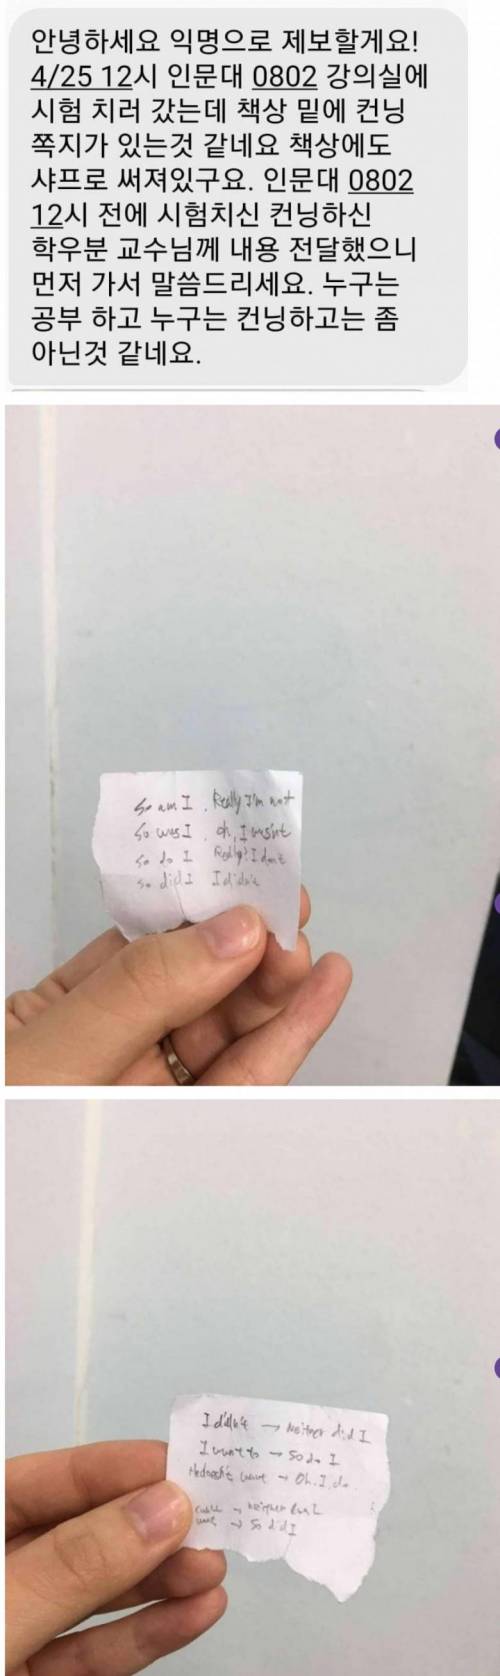 안녕하세요 익명으로 제보할게요!
4/25 12시 인문대 0802 강의실에
시험 치러 갔는데 책상 밑에 컨닝
쪽지가 있는것 같네요 책상에도
샤프로 써져있구요. 인문대 0802
12시 전에 시험치신 컨닝하신
학우분 교수님께 내용 전달했으니
먼저 가서 말씀드리세요. 누구는
공부 하고 누구는 컨닝하고는 좀
아닌것 같네요.
So am I . Really I'm not
So was I . Oh, I wasn't
So do I Really? I don't
So did I I didn't
I didn't → Neither did I
I want to → So do I
want → Oh. I do
→ Neither
→ So did I